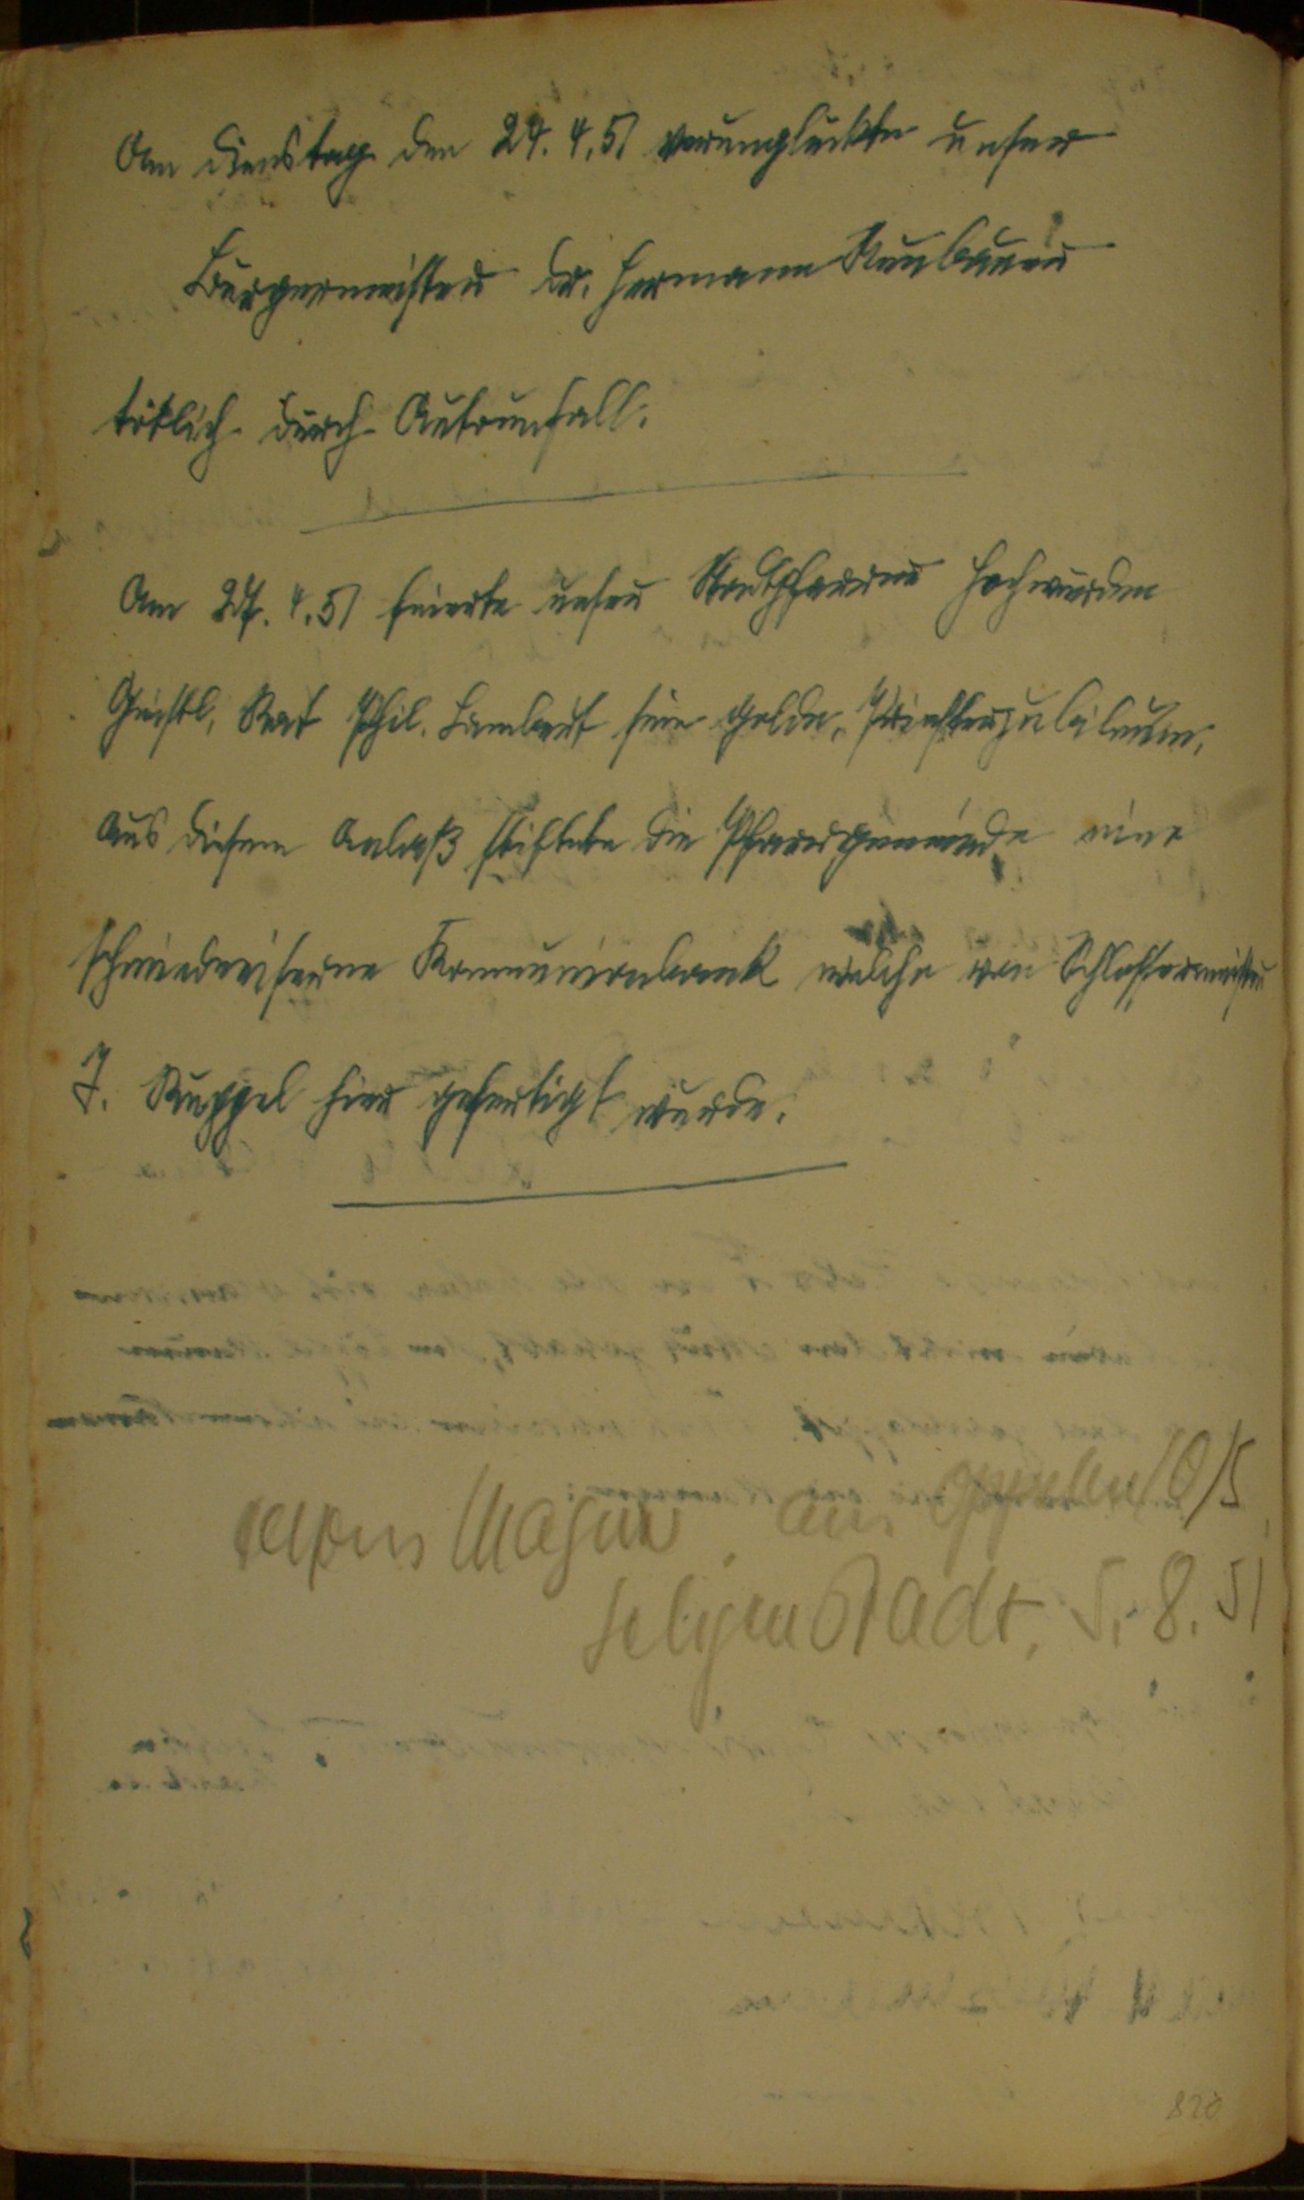 Am Dienstag den 24. 4. 51 verunglückte unser
Bürgermeister Dr. Hermann Neubauer
tötlich durch Autounfall.
Am 27. 4. 51 feierte unser Stadtpfarrer Hochwürden
Geistl. Rat Phil. Lambert sein golde. Priesterjubiläum.
Aus diesem Anlaß stiftete die Pfarrgemeinde eine
schmiedeeiserne Kommunionbank welche von Schlossermeister
J. Ruppel hier gefertigt wurde.
aus Oppeln O/S
Seligenstadt, 5. 8. 51
820